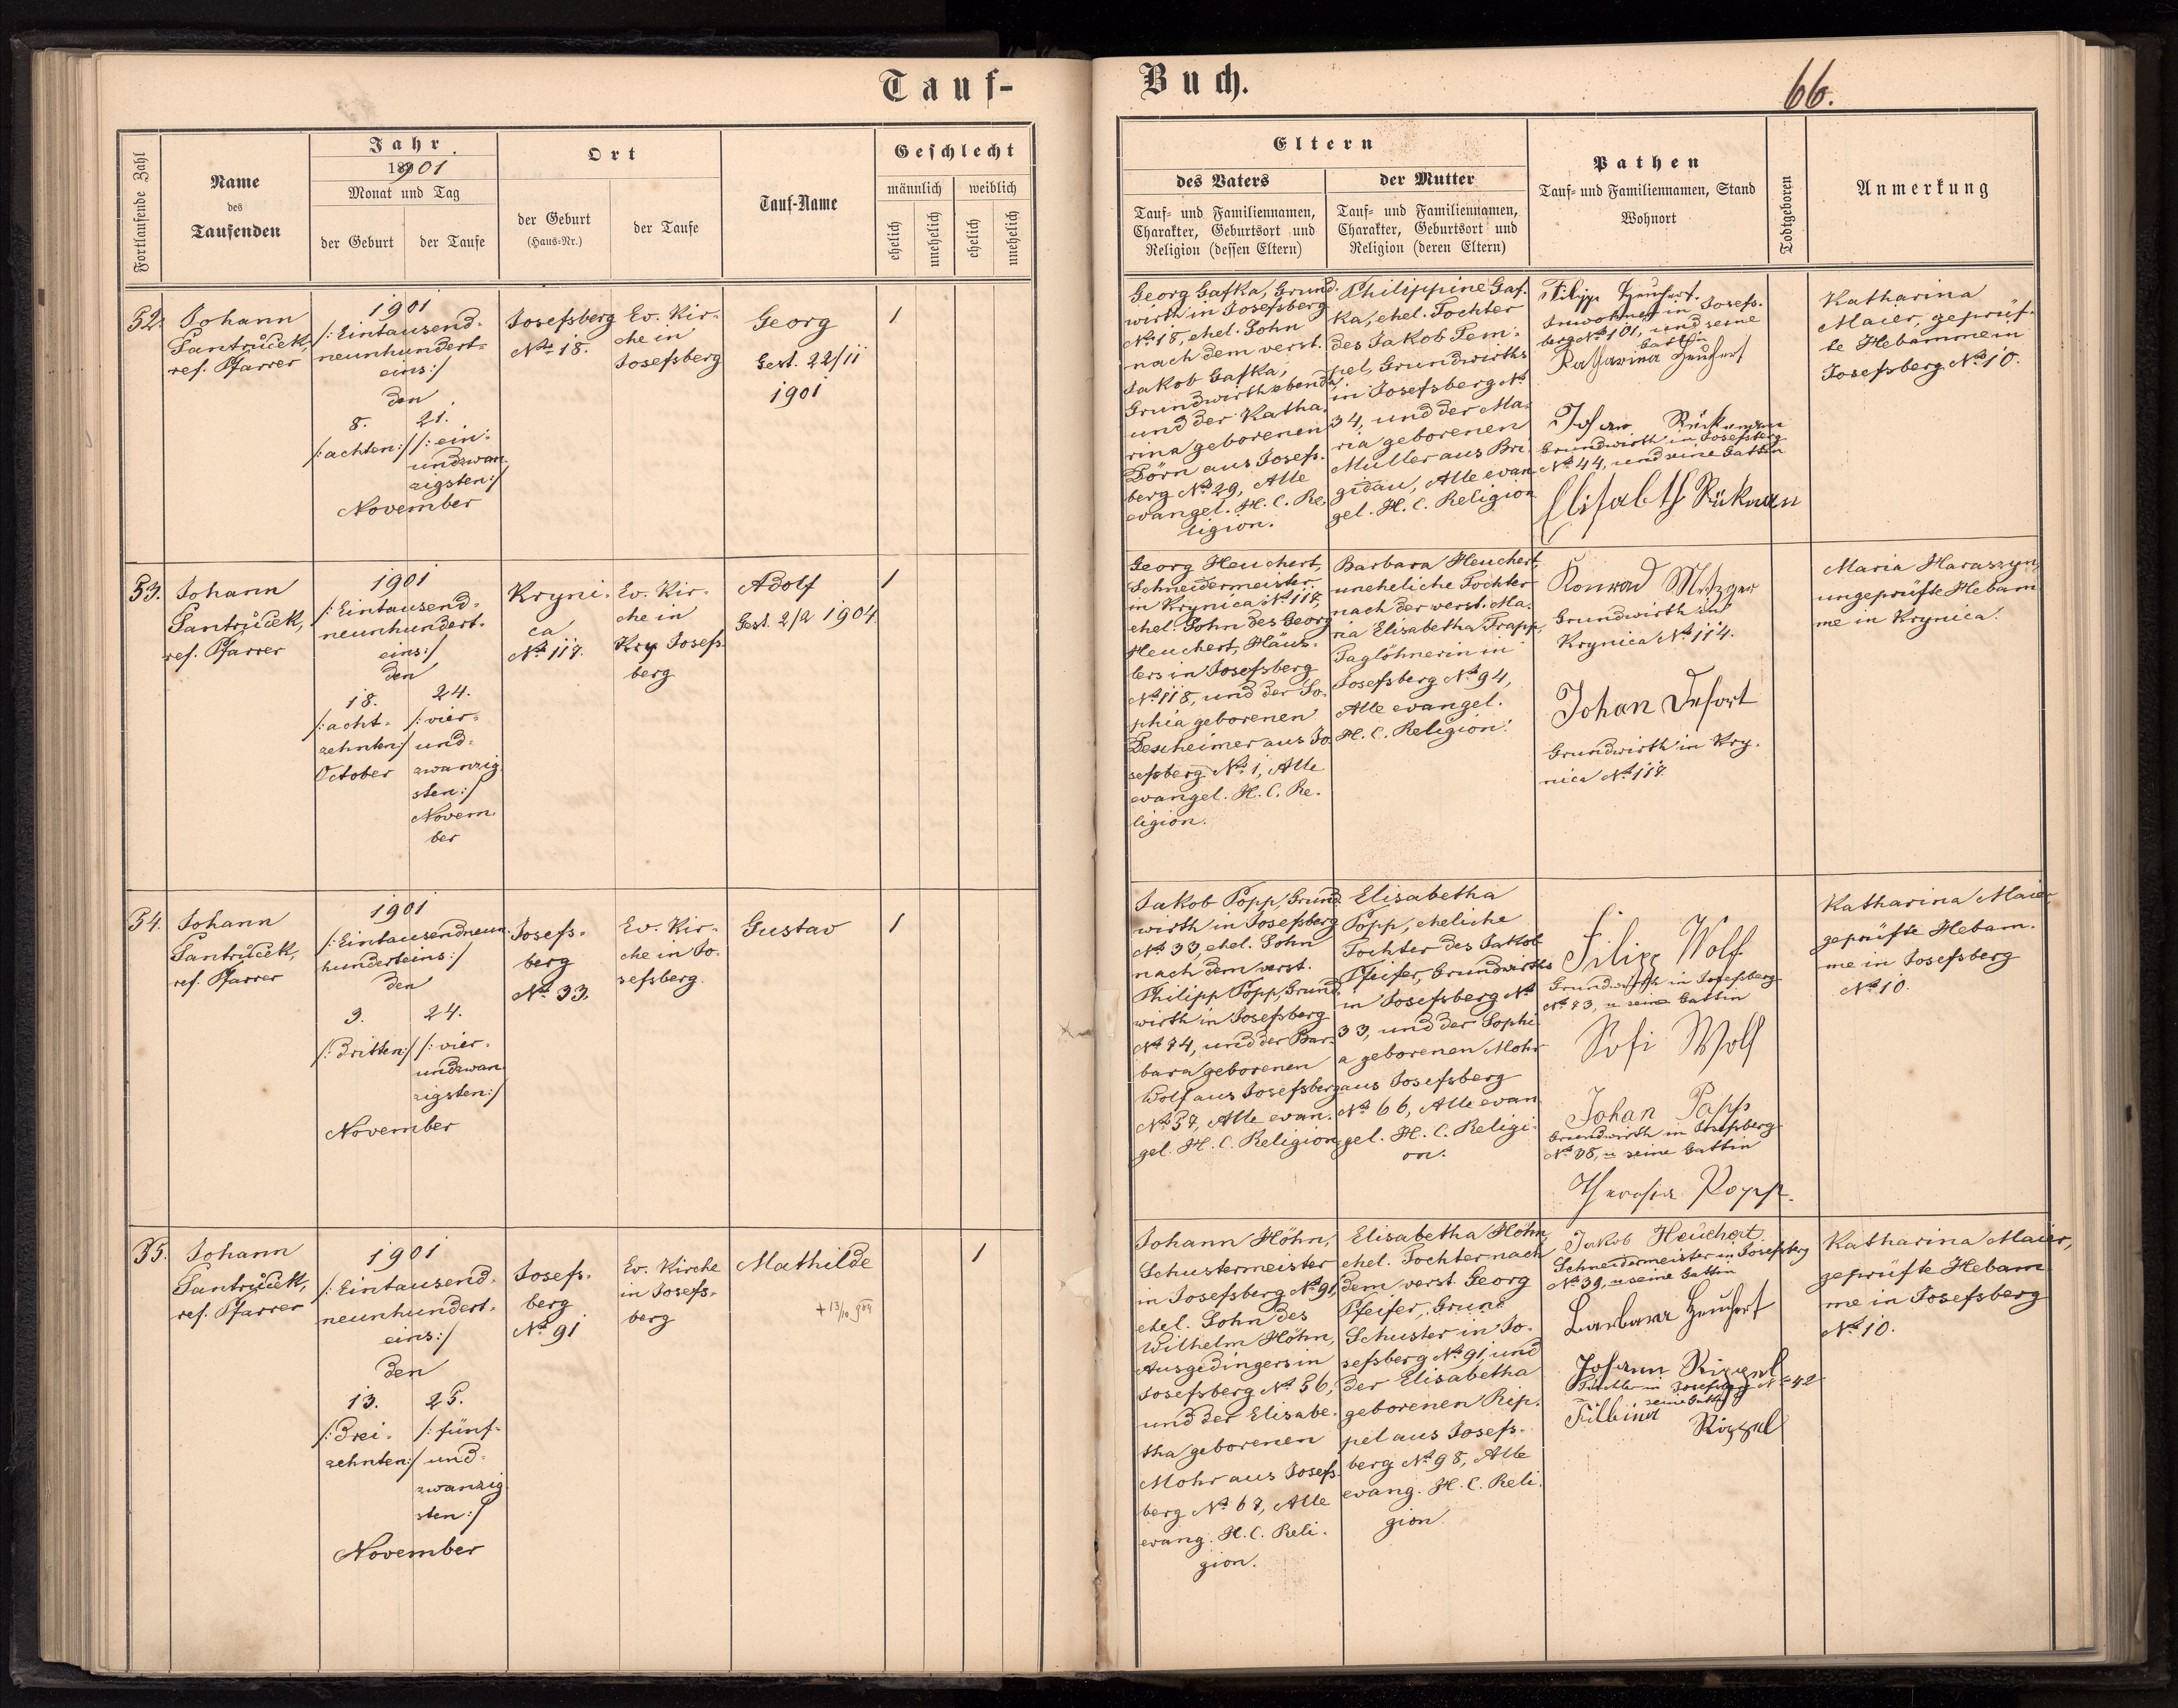 Tauf-
Buch.
66.
Fortlaufende Zahl
Name
des
Taufenden
Jahr
1901
Monat und Tag
der Geburt
der Taufe
Ort
der Geburt
(Haus-Nr.)
der Taufe
Tauf-Name
Geschlecht
männlich
weiblich
ehelich
unehelich
ehelich
unehelich
Eltern
des Vaters
Tauf- und Familiennamen,
Charakter, Geburtsort und
Religion (dessen Eltern)
der Mutter
Tauf- und Familiennamen,
Charakter, Geburtsort und
Religion (deren Eltern)
Pathen
Tauf- und Familiennamen, Stand
Wohnort
Todtgeboren
Anmerkung
52.
Johann
Santrůček,
ref. Pfarrer
1901
/: Eintausend-
neunhundert-
eins :/
den
8.
/: achten :/
21.
/: ein-
undzwan-
zigsten :/
November
Josefsberg
No 18.
Ev. Kir-
che in
Josefsberg
Georg
Gest. 22/11
1901
1
Georg Gafka, Grund-
wirth in Josefsberg
No 18, ehel. Sohn
nach dem verst.
Jakob Gafka,
Grundwirth ebenda,
und der Katha-
rina geborenen
Dörn aus Josefs-
berg No 29, Alle
evangel. H. C. Re-
ligion.
Philippine Gaf-
ka, ehel. Tochter
des Jakob Tem-
pel, Grundwirths
in Josefsberg No
34, und der Ma-
ria geborenen
Müller aus Bri-
gidau, Alle evan-
gel. H. C. Religion
Filipp Heuchert.
Inwohner in Josefs-
berg No 101, und seine
Gattin
Katharina Heuchert
Johann Rückemann
Grundwirth in Josefsberg
No 44, und seine Gattin
Elisabeth
Katharina
Maier, geprüf-
te Hebamme in
Josefsberg No 10.
53.
Johann
Santrůček,
ref. Pfarrer
1901
/: Eintausend-
neunhundert-
eins :/
den
18.
/: acht-
zehnten :/
October
24.
/: vier-
und-
zwanzig-
sten :/
Novem-
ber
Kryni-
ca
No 117.
Ev. Kir-
che in
Kry Josefs-
berg
Adolf
Gest. 2/2 1904
1
Georg Heuchert,
Schneidermeister
in Krynica No 117,
ehel. Sohn des Georg
Heuchert, Häus-
lers in Josefsberg
No 118, und der So-
phia geborenen
Descheimer aus Jo-
sefsberg No 1, Alle
evangel. H. C. Re-
ligion.
Barbara Heuchert,
uneheliche Tochter
nach der verst. Ma-
ria Elisabetha Trapp,
Taglöhnerin in
Josefsberg No 94,
Alle evangel.
H. C. Religion.
Konrad Metzger
Grundwirth in
Krynica No 114.
Johan Dufort
Grundwirth in Kry-
nica No 117
Maria Haraszyn,
ungeprüfte Hebam-
me in Krynica.
54.
Johann
Santrůček,
ref. Pfarrer
1901
/: Eintausendneun-
hunderteins :/
den
3.
/: dritten :/
24.
/: vier-
undzwan-
zigsten :/
November
Josefs-
berg
No 33.
Ev. Kir-
che in Jo-
sefsberg.
Gustav
1
Jakob Popp, Grund-
wirth in Josefsberg
No 33, ehel. Sohn
nach dem verst.
Philipp Popp, Grund-
wirth in Josefsberg
No 74, und der Bar-
bara geborenen
Wolf aus Josefsberg
No 57, Alle evan-
gel. H. C. Religion
Elisabetha
Popp, eheliche
Tochter des Jakob
Pfeifer, Grundwirths
in Josefsberg No
33, und der Sophi-
a geborenen Mohr
aus Josefsberg
No 66, Alle evan-
gel. H. C. Religi-
on.
Filipp Wolf
Grundwirth in Josefsberg
No 73, u seine Gattin
Sofi Wolf
Johan Popp
Grundwirth in Josefsberg
No 78, u seine Gattin
Theresia Popp.
Katharina Maier,
geprüfte Hebam-
me in Josefsberg
No 10.
55.
Johann
Santrůček,
ref. Pfarrer
1901
/: Eintausend-
neunhundert-
eins :/
den
13.
/: drei-
zehnten :/
25.
/: fünf-
und-
zwanzig-
sten :/
November
Josefs-
berg
No 91
Ev. Kirche
in Josefs-
berg
Mathilde
+ 13/10
1
Johann Höhn,
Schustermeister
in Josefsberg No 91,
ehel. Sohn des
Wilhelm Höhn,
Ausgedingers in
Josefsberg No 56,
und der Elisabe-
tha geborenen
Mohr aus Josefs-
berg No 67, Alle
evang. H. C. Reli-
gion.
Elisabetha Höhn,
ehel. Tochter nach
dem verst. Georg
Pfeifer, Grund
Schuster in Jo-
sefsberg No 91, und
der Elisabetha
geborenen Rip-
pel aus Josefs-
berg No 98, Alle
evang. H. C. Reli-
gion.
Jakob Heuchert
Schneidermeister in Josefsberg
No 39, u seine Gattin
Barbara Heuchert
Johann Rippel
Tischler in Josefsberg No 42
seine Gattin
Rippel
Katharina Maier,
geprüfte Hebam-
me in Josefsberg
No 10.